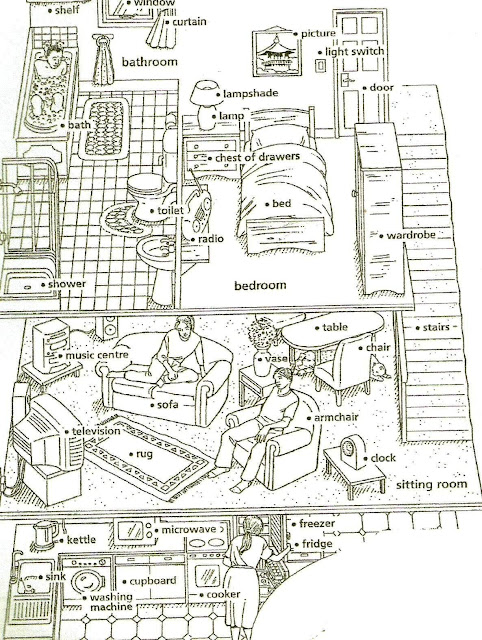 shelf
window
curtain
bathroom
picture
light switch
door
lampshade
lamp
bath
chest of drawers
toilet
bed
radio
wardrobe
shower
bedroom
table
stairs
music centre
vase
chair
sofa
armchair
television
rug
clock
sitting room
kettle
microwave
freezer
fridge
sink
cupboard
washing
machine
cooker